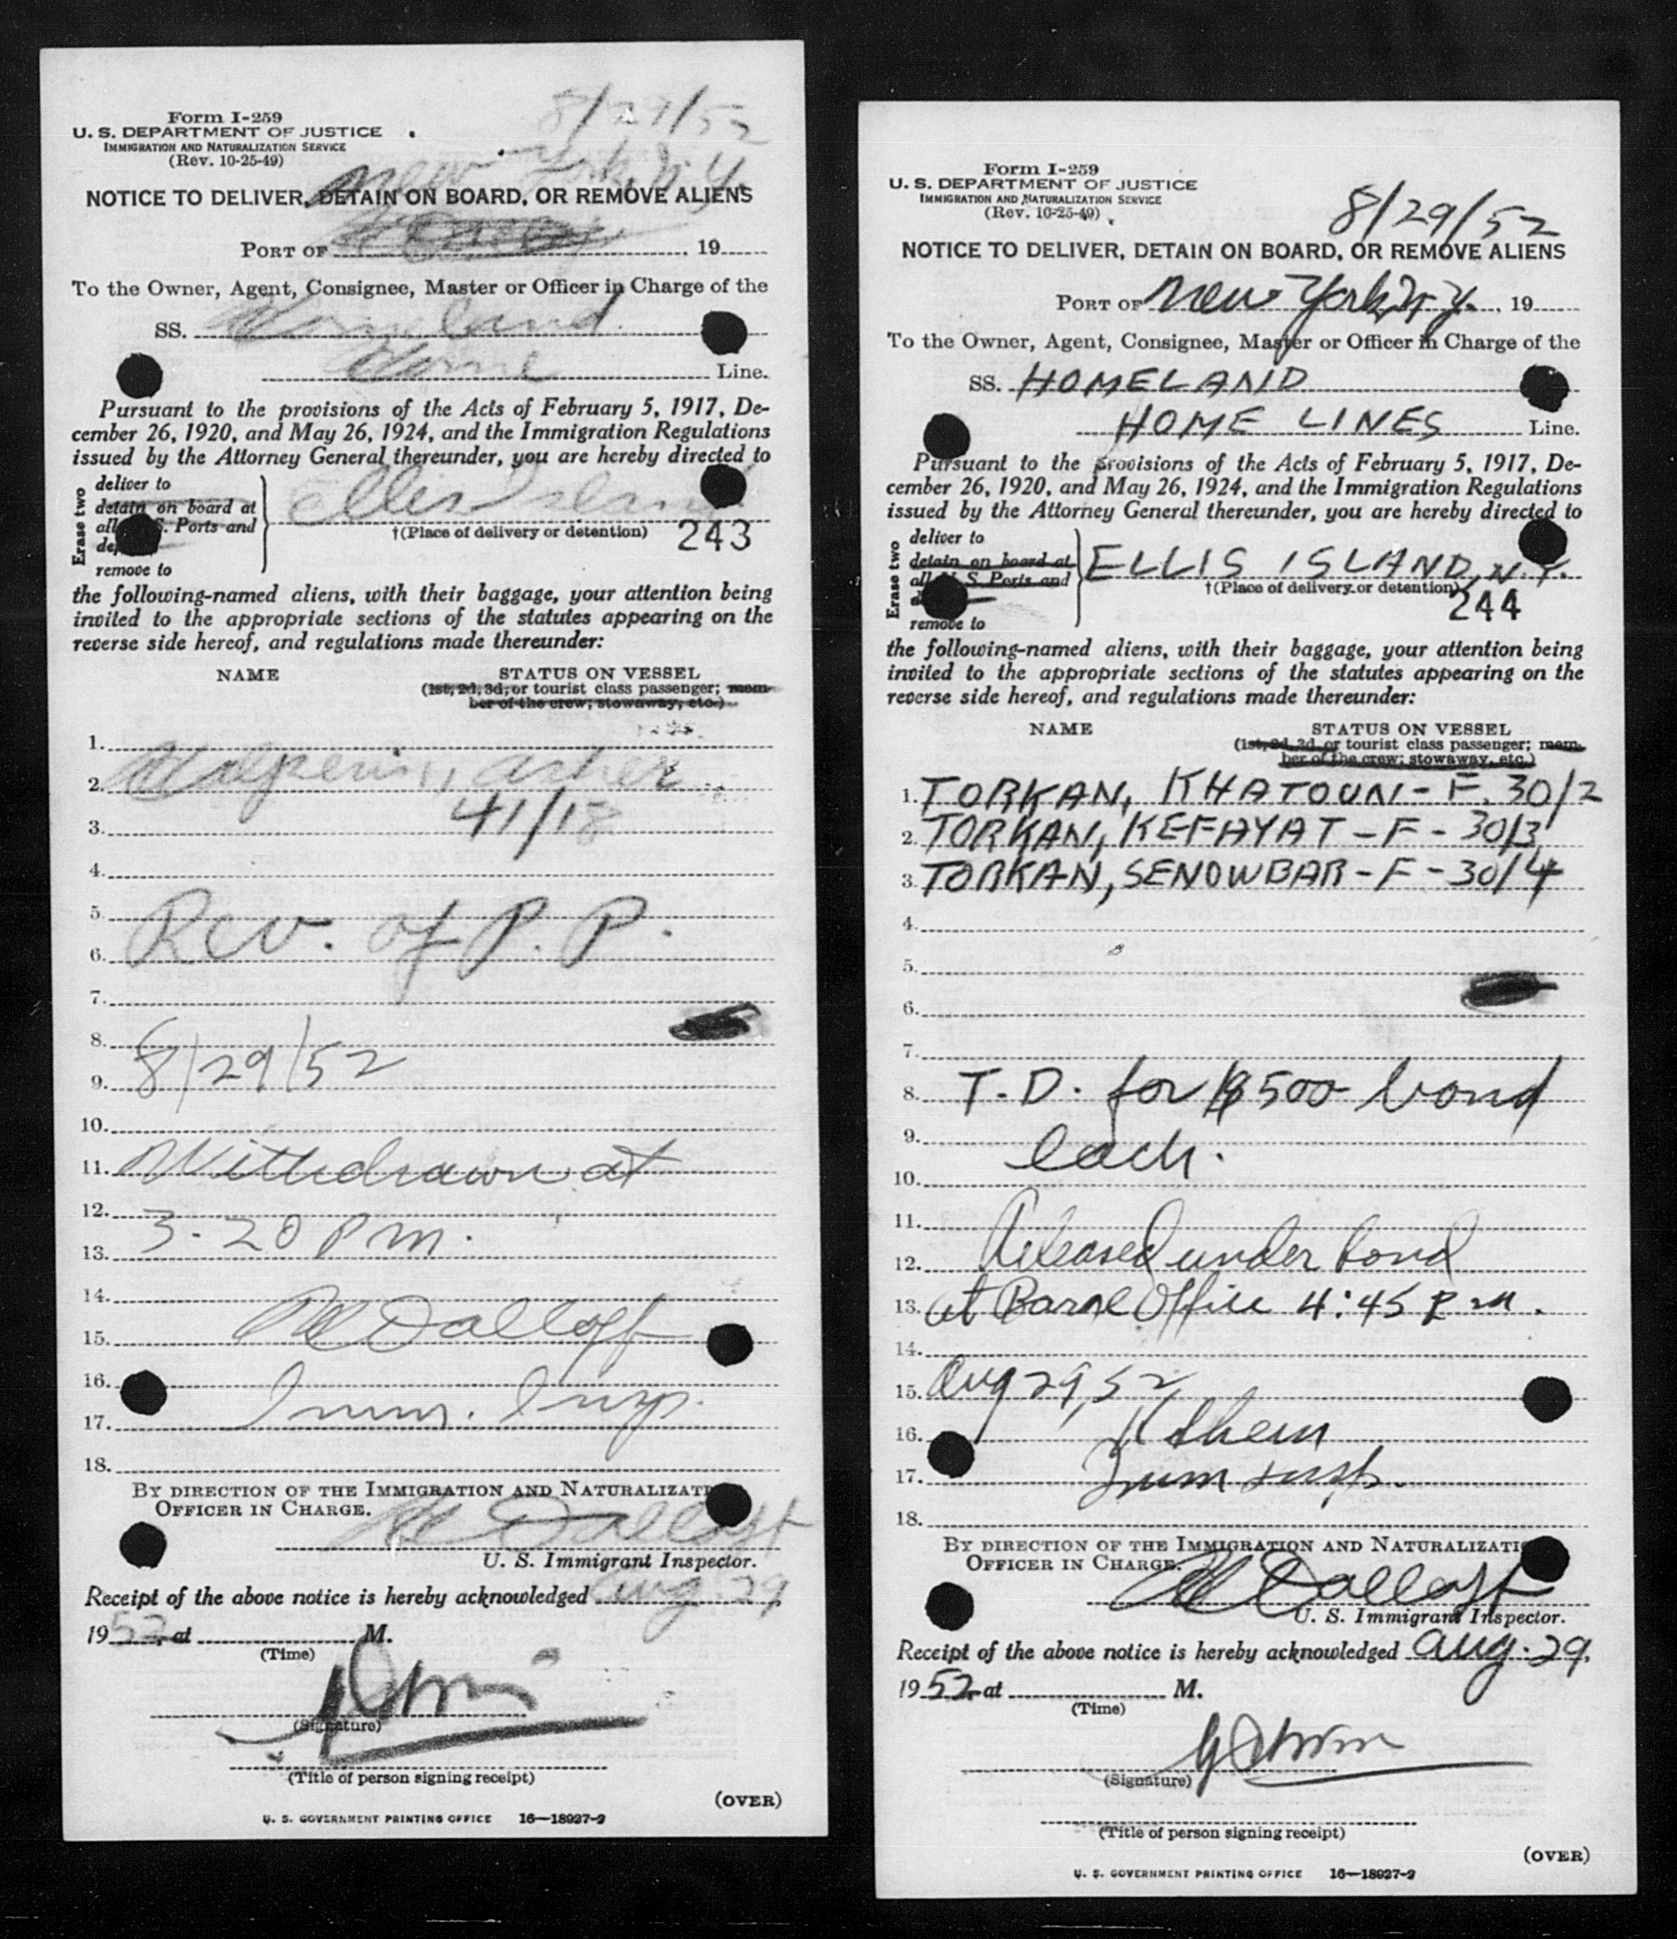 Form I-259
U. S. DEPARTMENT OF JUSTICE
IMMIGRATION AND NATURALIZATION SERVICE
(Rev. 10-25-49)
8/29/52
New York, N.Y.
NOTICE TO DELIVER, DETAIN ON BOARD, OR REMOVE ALIENS
PORT OF , 19
To the Owner, Agent, Consignee, Master or Officer in Charge of the
SS. Homeland
Home Line.
Pursuant to the provisions of the Acts of February 5, 1917, De-
cember 26, 1920, and May 26, 1924, and the Immigration Regulations
issued by the Attorney General thereunder, you are hereby directed to
Erase two
deliver to
detain on board at
all S. Ports and
remove to
Ellis Island
†(Place of delivery or detention) 243
the following-named aliens, with their baggage, your attention being
invited to the appropriate sections of the statutes appearing on the
reverse side hereof, and regulations made thereunder:
NAME STATUS ON VESSEL
(1st, 2d, 3d, or tourist class passenger; mem-
ber of the crew; stowaway, etc.)
1.
2. Halperin, Asher
3. 41/18
4.
5.
6. Rev. of P. P.
7.
8.
9. 8/29/52
10.
11. Withdrawn at
12.
13. 3-20 PM.
14.
15. Dalloff
16.
17. Imm. Insp.
18.
BY DIRECTION OF THE IMMIGRATION AND NATURALIZATI
OFFICER IN CHARGE.
Dalloff
U. S. Immigrant Inspector.
Receipt of the above notice is hereby acknowledged Aug. 29,
1952, at M.
(Time)
(Signature)
(Title of person signing receipt)
(OVER)
U. S. GOVERNMENT PRINTING OFFICE 16—18927-2
Form I-259
U. S. DEPARTMENT OF JUSTICE
IMMIGRATION AND NATURALIZATION SERVICE
(Rev. 10-25-49)
8/29/52
NOTICE TO DELIVER, DETAIN ON BOARD, OR REMOVE ALIENS
PORT OF New York, N.Y. , 19
To the Owner, Agent, Consignee, Master or Officer in Charge of the
SS. HOMELAND
HOME LINES Line.
Pursuant to the provisions of the Acts of February 5, 1917, De-
cember 26, 1920, and May 26, 1924, and the Immigration Regulations
issued by the Attorney General thereunder, you are hereby directed to
Erase two
deliver to
detain on board at
all U. S. Ports and
remove to
ELLIS ISLAND, N.Y.
†(Place of delivery or detention) 244
the following-named aliens, with their baggage, your attention being
invited to the appropriate sections of the statutes appearing on the
reverse side hereof, and regulations made thereunder:
NAME STATUS ON VESSEL
(1st, 2d, 3d, or tourist class passenger; mem-
ber of the crew; stowaway, etc.)
1. TORKAN, KHATOUN - F. 30/2
2. TORKAN, KEFAYAT - F - 30/3
3. TORKAN, SENOWBAR - F - 30/4
4.
5.
6.
7.
8. T.D. for $500 bond
9. each.
10.
11.
12. Released under bond
13. at Barge Office 4:45 P.M.
14.
15. Aug 29, 52
16.
17. Imm Insp.
18.
BY DIRECTION OF THE IMMIGRATION AND NATURALIZATI
OFFICER IN CHARGE.
Dalloff
U. S. Immigrant Inspector.
Receipt of the above notice is hereby acknowledged Aug. 29,
1952, at M.
(Time)
(Signature)
(Title of person signing receipt)
(OVER)
U. S. GOVERNMENT PRINTING OFFICE 16—18927-2